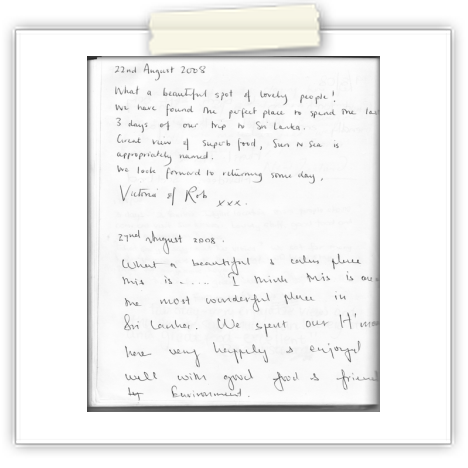 22nd August 2008
What a beautiful spot & lovely people!
We have found the perfect place to spend the
3 days of our trip to Sri Lanka.
Great view & superb food, Sun 'n Sea is
appropriately named.
We look forward to returning some day.
Victoria & Rob xxx.
22nd August 2008.
What a beautiful & calm place
this is..... I think this is
the most wonderful place in
Sri Lanka. We spent our
here very happily & enjoyed
well with good food &
Environment.